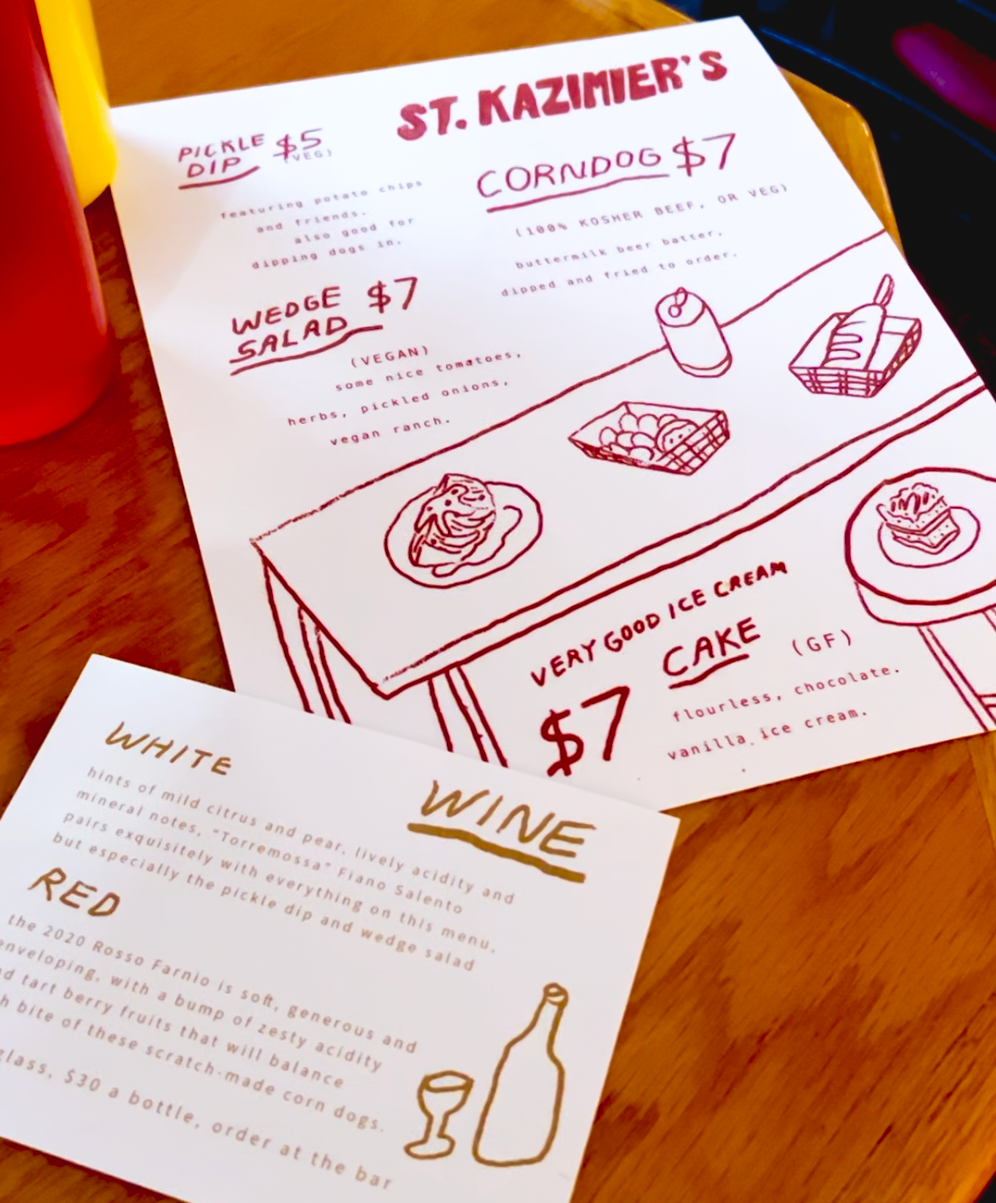 ST. KAZIMIER'S
PICKLE
DIP $5
(VEG)
featuring potato chips
and friends.
also good for
dipping dogs in.
CORNDOG $7
(100% KOSHER BEEF, OR VEG)
buttermilk beer batter,
dipped and fried to order.
WEDGE
SALAD $7
(VEGAN)
some nice tomatoes,
herbs, pickled onions,
vegan ranch.
VERY GOOD ICE CREAM
CAKE (GF)
$7
flourless, chocolate.
vanilla ice cream.
WINE
WHITE
hints of mild citrus and pear, lively acidity and
mineral notes, "Torremossa" Fiano Salento
pairs exquisitely with everything on this menu,
but especially the pickle dip and wedge salad
RED
the 2020 Rosso Farnio is soft, generous and
enveloping, with a bump of zesty acidity
tart berry fruits that will balance
bite of these scratch-made corn dogs.
glass, $30 a bottle, order at the bar